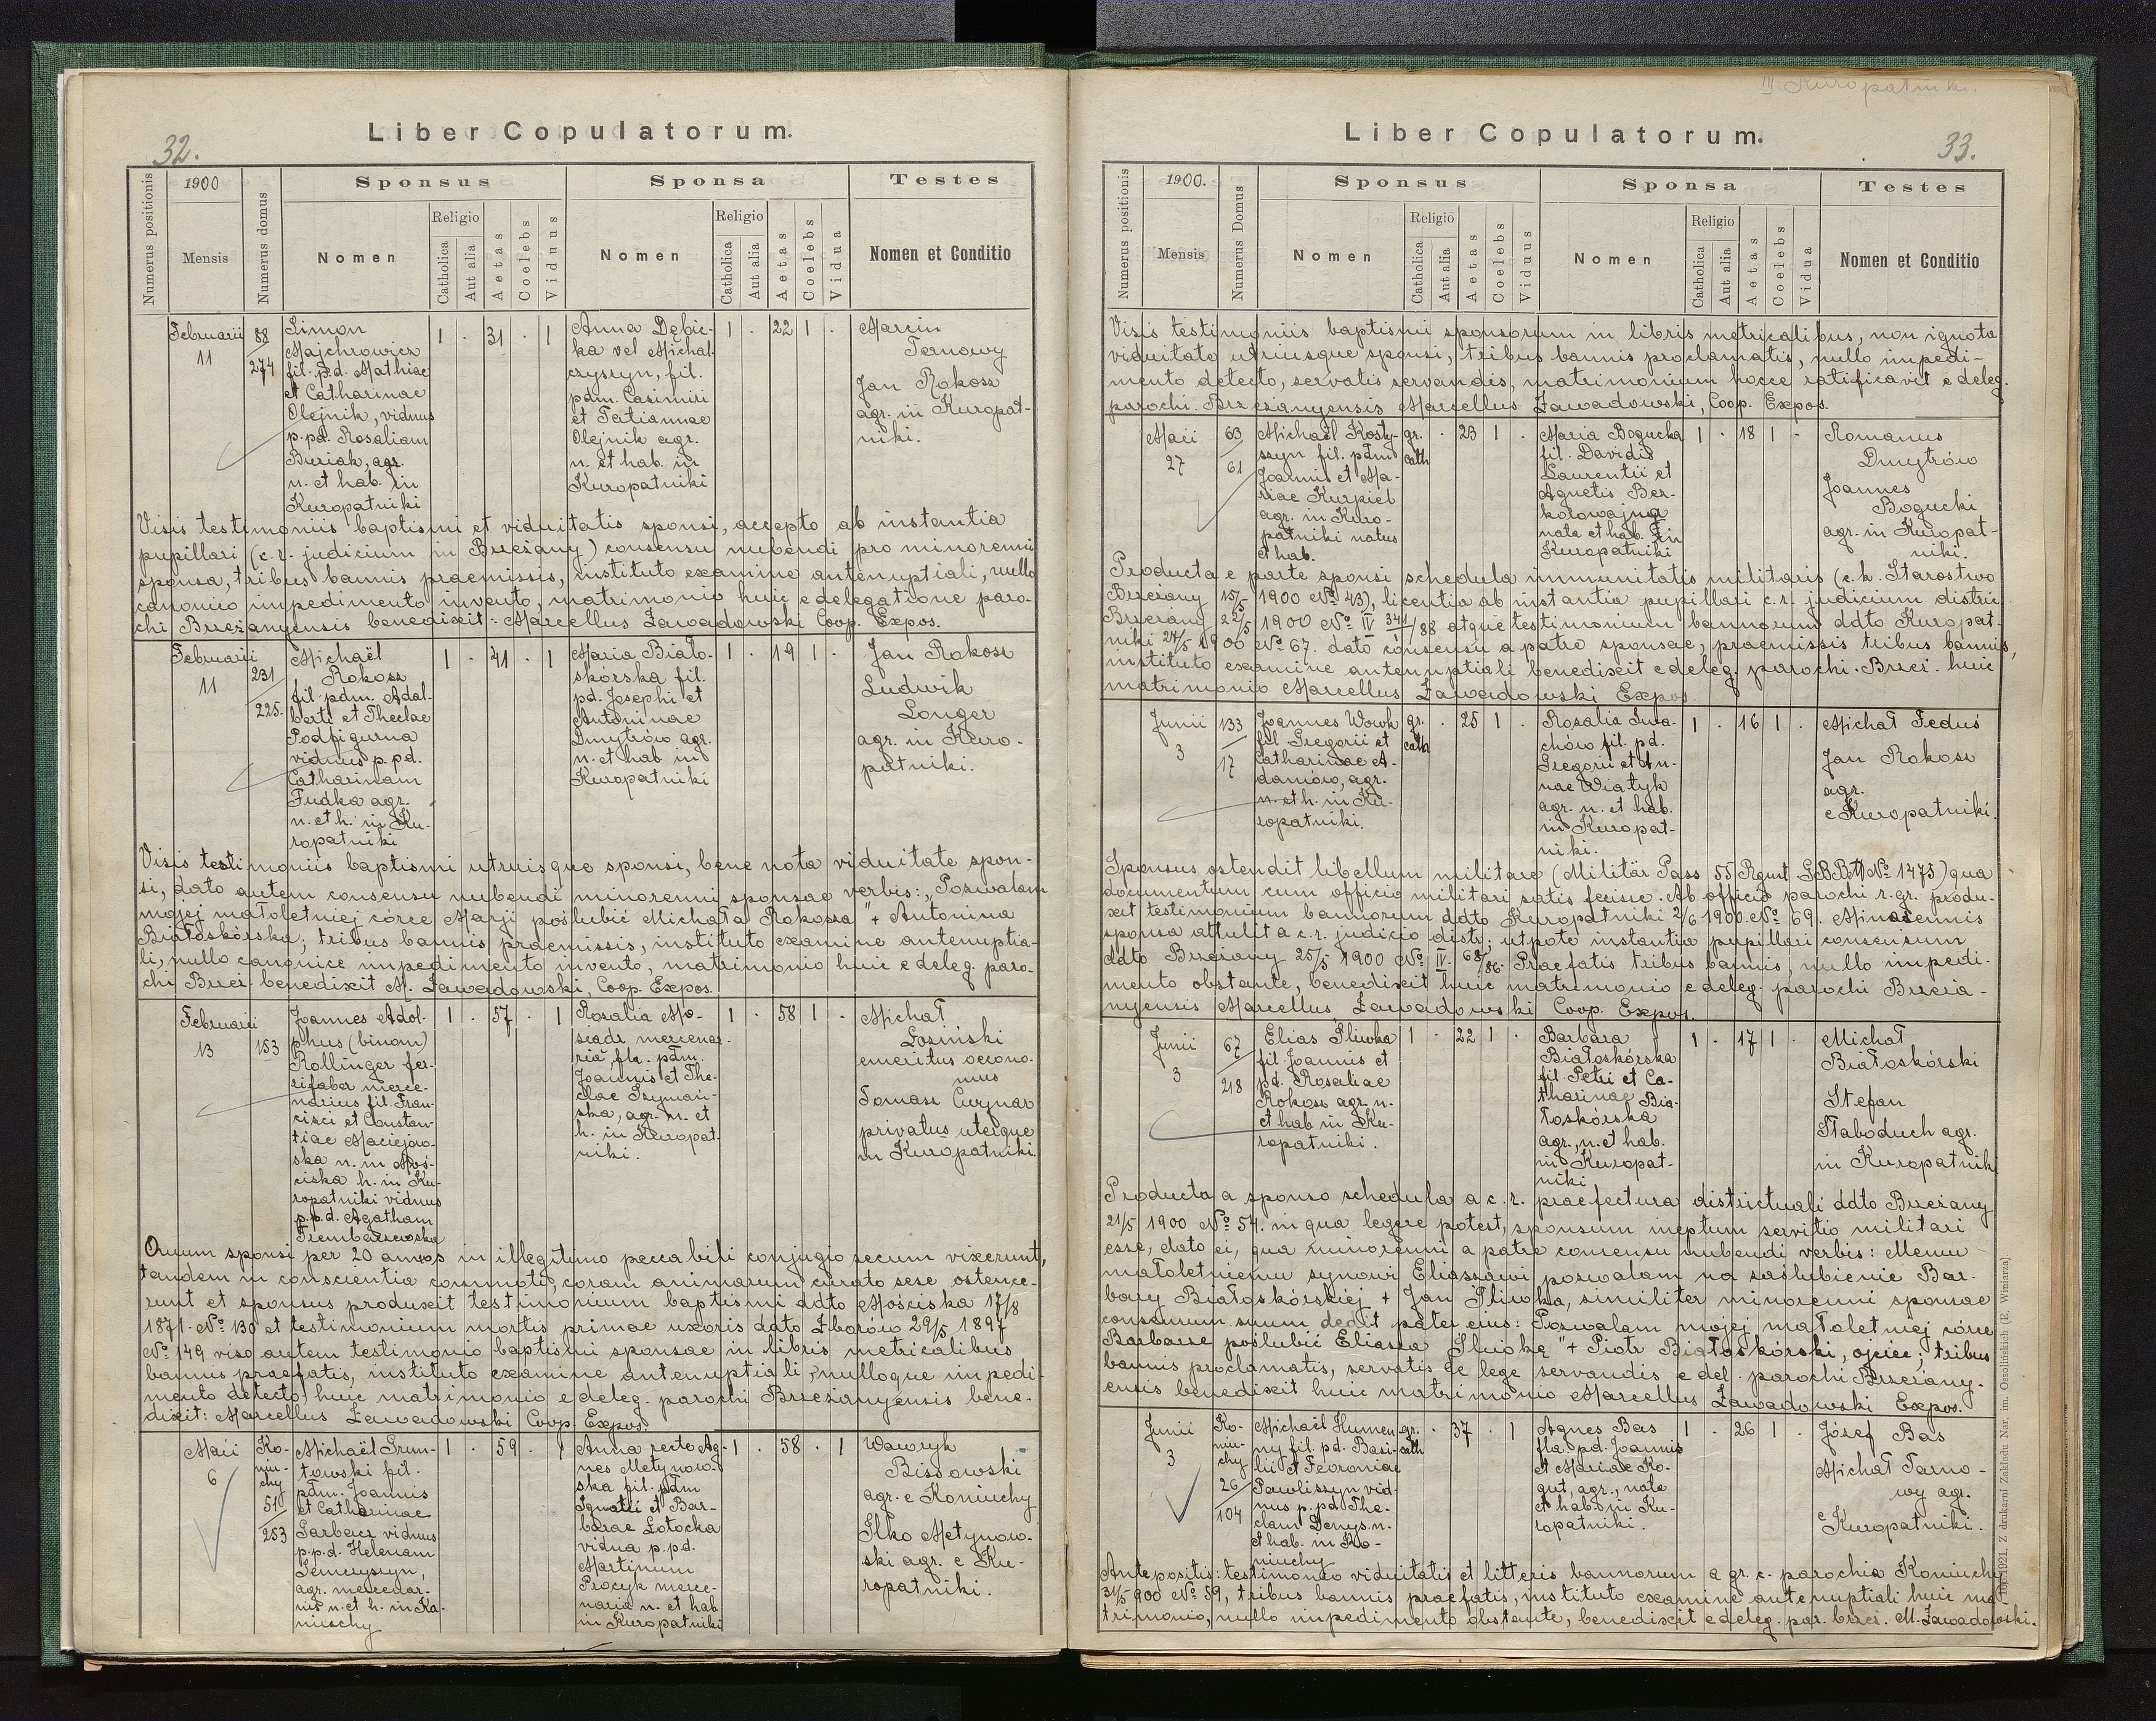 32.
Liber Copulatorum.
Numerus positionis
1900
Mensis
Numerus domus
Sponsus
Nomen
Religio
Catholica
Aut alia
Aetas
Coelebs
Viduus
Sponsa
Nomen
Religio
Catholica
Aut alia
Aetas
Coelebs
Vidua
Testes
Nomen et Conditio
Februarii
11
88
274
Simon
Majchrowicz
fil. p.d. Mathiae
et Catharinae
Olejnik, viduus
p.pd. Rosaliam
Buriak, agr.
n. et hab. in
Kuropatniki
1 . 31 . 1
Anna Dębic-
ka vel Michal-
czyszyn, fil.
pdm. Casimiri
et Tatiannae
Olejnik agr.
n. et hab. in
Kuropatniki
1 . 22 1 .
Marcin
Ternowy
Jan Rokosz
agr. in Kuropat-
niki.
Visis testimoniis baptismi et viduitatis sponsi, accepto ab instantia
pupillari (c.r. judicium in Brzeżany) consensu nubendi pro minorenni
sponsa, tribus bannis praemissis, instituto examine antenuptiali, nullo
canonico impedimento invento, matrimonio huic e delegatione paro-
chi Brzeżanyensis benedixit: Marcellus Zawadowski Coop. Expos.
Februarii
11
231
225.
Michaël
Rokosz
fil. pdm. Adal-
berti et Theclae
Podfigurna
viduus p.pd.
Catharinam
Fudka agr.
n. et h. in Ku-
ropatniki
1 . 41 . 1
Maria Biało-
skórska fil.
pd. Josephi et
Antoninae
Dmytrów agr.
n. et hab in
Kuropatniki
1 . 19 1 .
Jan Rokosz
Ludwik
Longer
agr. in Kuro-
patniki.
Visis testimoniis baptismi utruisque sponsi, bene nota viduitate spon-
si, dato autem consensu nubendi minorenni sponsae verbis: „Pozwalam
mojej małoletniej córce Marji poślubić Michała Rokosza" + Antonina
Białoskórska; tribus bannis praemissis, instituto examine antenuptia-
li, nullo canonice impedimento invento, matrimonio huic e deleg. paro-
chi Brzeż. benedixit M. Zawadowski, Coop. Expos.
Februarii
13
153
Joannes Adol-
phus (binom)
Rollinger fer-
rifaber merce-
narius fil. Fran-
cisci et Constan-
tiae Maciejow-
ska n. in Moś-
ciska h. in Ku-
ropatniki viduus
p.p.d. Agatham
Trembaczewska
1 . 57 . 1
Rosalia Mo-
siadz mercena-
ria, fla. pdm.
Joannis et The-
clae Szymań-
ska, agr. n. et
h. in Kuropat-
niki.
1 . 58 1 .
Michał
Łoziński
emeritus oecono-
mus
Tomasz Curjnar
privatus uterque
in Kuropatniki.
Quum sponsi per 20 annos in illegitimo peccabili conjugio secum vixerunt,
tandem in conscientia commoti, coram animarum curato sese ostence-
runt et sponsus produxit testimonium baptismi ddto Mościska 17/8
1871. No 130 et testimonium mortis primae uxoris ddto Zborów 29/5 1897
No 149 viso autem testimonio baptismi sponsae in libris metricalibus
bannis praefatis, instituto examine antenuptiali, nulloque impedi-
mento detecto, huic matrimonio e deleg. parochi Brzeżanyensis bene-
dixit: Marcellus Zawadowski Coop. Expos.
Maii
6
Ko-
niu-
chy
51
253
Michaël Grun-
towski fil.
pdm. Joannis
et Catharinae
Garbacz viduus
p.p.d. Helenam
Semczyszyn,
agr. mercenar-
ius n. et h. in Ko-
niuchy
1 . 59 . 1
Anna recte Ag-
nes Metynow-
ska fil. pdm
Ignatii et Bar-
barae Łotocka
vidua p.pd.
Martinum
Procyk merce-
naria n. et hab
in Kuropatniki
1 . 58 . 1
Wawryk
Bissowski
agr. e Koniuchy
Ilko Metynow-
ski agr. e Ku-
ropatniki.
III Kuropatniki.
33.
Liber Copulatorum.
Numerus positionis
1900.
Mensis
Numerus Domus
Sponsus
Nomen
Religio
Catholica
Aut alia
Aetas
Coelebs
Viduus
Sponsa
Nomen
Religio
Catholica
Aut alia
Aetas
Coelebs
Vidua
Testes
Nomen et Conditio
Visis testimoniis baptismi sponsorum in libris metricalibus, non ignota
viduitate utriusque sponsi, tribus bannis proclamatis, nullo impedi-
mento detecto, servatis servandis, matrimonium hocce ratificavit e deleg.
parochi. Brzeżanyensis Marcellus Zawadowski, Coop. Expos.
Maii
27
63
61
Michaël Kosty-
szyn fil. pdm
Joannis et Ma-
riae Kurpiel
agr. in Kuro-
patniki natus
et hab.
gr.
cath
. 23 1 .
Maria Bogucka
fil. Davidis
Laurentii et
Agnetis Ber-
kołowajna
nata et hab. in
Kuropatniki
1 . 18 1 -
Romanus
Dmytrów
Joannes
Bogucki
agr. in Kuropat-
niki.
Producta e parte sponsi schedula immunitatis militaris (c.k. Starostwo
Brzeżany 15/5 1900 No 43), licentia ab instantia pupillari c.r. judicium distric.
Brzeżany 22/5 1900 No IV 341/1/88 atque testimonium bannorum ddto Kuropat-
niki 27/5 1900 No 67. dato consensu a patre sponsae, praemissis tribus bannis,
instituto examine antenuptiali benedixit e deleg. parochi. Brzeż. huic
matrimonio Marcellus Zawadowski Expos.
Junii
3
133
17
Joannes Wowk
fil. Gregorii et
Catharinae A-
damów, agr.
n. et h. in Ku-
ropatniki.
gr.
cath
. 25 1 .
Rosalia Iwa-
chów fil. pd.
Gregorii et An-
nae Wiatyk
agr. n. et hab.
in Kuropat-
niki.
1 . 16 1 .
Michał Feduś
Jan Rokosz
agr.
e Kuropatniki.
Sponsus ostendit libellum militare (Militär Pass 55 Rgmt No 1473) qua
documentum eum officio militari satis fecisse. Ab officio parochi r.gr. produ-
xit testimonium bannorum ddto Kuropatniki 2/6 1900. No 69. Minorennis
sponsa attulit a c.r. judicio distr; utpote instantia pupillari consensum
ddto Brzeżany 25/5 1900 No IV. 68/86. Praefatis tribus bannis, nullo impedi-
mento obstante, benedixit huic matrimonio e deleg. parochi Brzeża-
nyensis Marcellus Zawadowski Coop. Expos.
Junii
3
67
218
Elias Śliwka
fil. Joannis et
pd. Rosaliae
Rokosz agr. n.
et hab in Ku-
ropatniki.
1 . 22 1 .
Barbara
Białoskórska
fil. Petri et Ca-
tharinae Bia-
łoskórska
agr., n. et hab.
in Kuropat-
niki
1 . 17 1 .
Michał
Białoskórski
Stefan
Słaboduch agr.
in Kuropatniki
Producta a sponso schedula a c.r. praefectura districtuali ddto Brzeżany
21/5 1900 No 54. in qua legere potest, sponsum ineptum servitio militari
esse, dato ei, qua minorenni a patre consensu nubendi verbis: Memu
małoletniemu synowi Eliaszowi pozwalam na zaślubienie Bar-
bary Białoskórskiej + Jan Śliwka, similiter minorenni sponsae
consensum suum dedit pater eius: Pozwalam mojej małoletniej córce
Barbarze poślubić Eliasza Śliwkę" + Piotr Białoskórski, ojciec; tribus
bannis proclamatis, servatis de lege servandis e del. parochi Brzeżany-
ensis benedixit huic matrimonio Marcellus Zawadowski Expos.
Junii
3
Ko-
niu-
chy
26
104
Michaël Humen-
ny fil. pd. Basi-
lii et Fevroniae
Pawliszyn vid-
uus p.pd. The-
clam Denys. n.
et hab. in Ko-
niuchy
gr.
cath
. 37 . 1
Agnes Bas
fla. pd. Joannis
et Mariae Ko-
gut, agr., nata
et hab. in Ku-
ropatniki.
1 . 26 1 .
Józef Bas
Michał Tarno-
wy agr.
e Kuropatniki.
Antepositis: testimonio viduitatis et litteris bannorum a gr. c. parochia Koniuchy
31/5 900 No 59, tribus bannis praefatis, instituto examine antenuptiali huic ma-
trimonio, nullo impedimento obstante, benedixit e deleg. par. brzeż. M. Zawadowski.
1921. Z drukarni Zakładu Nar. im. Ossolińskich (E. Winiarza)